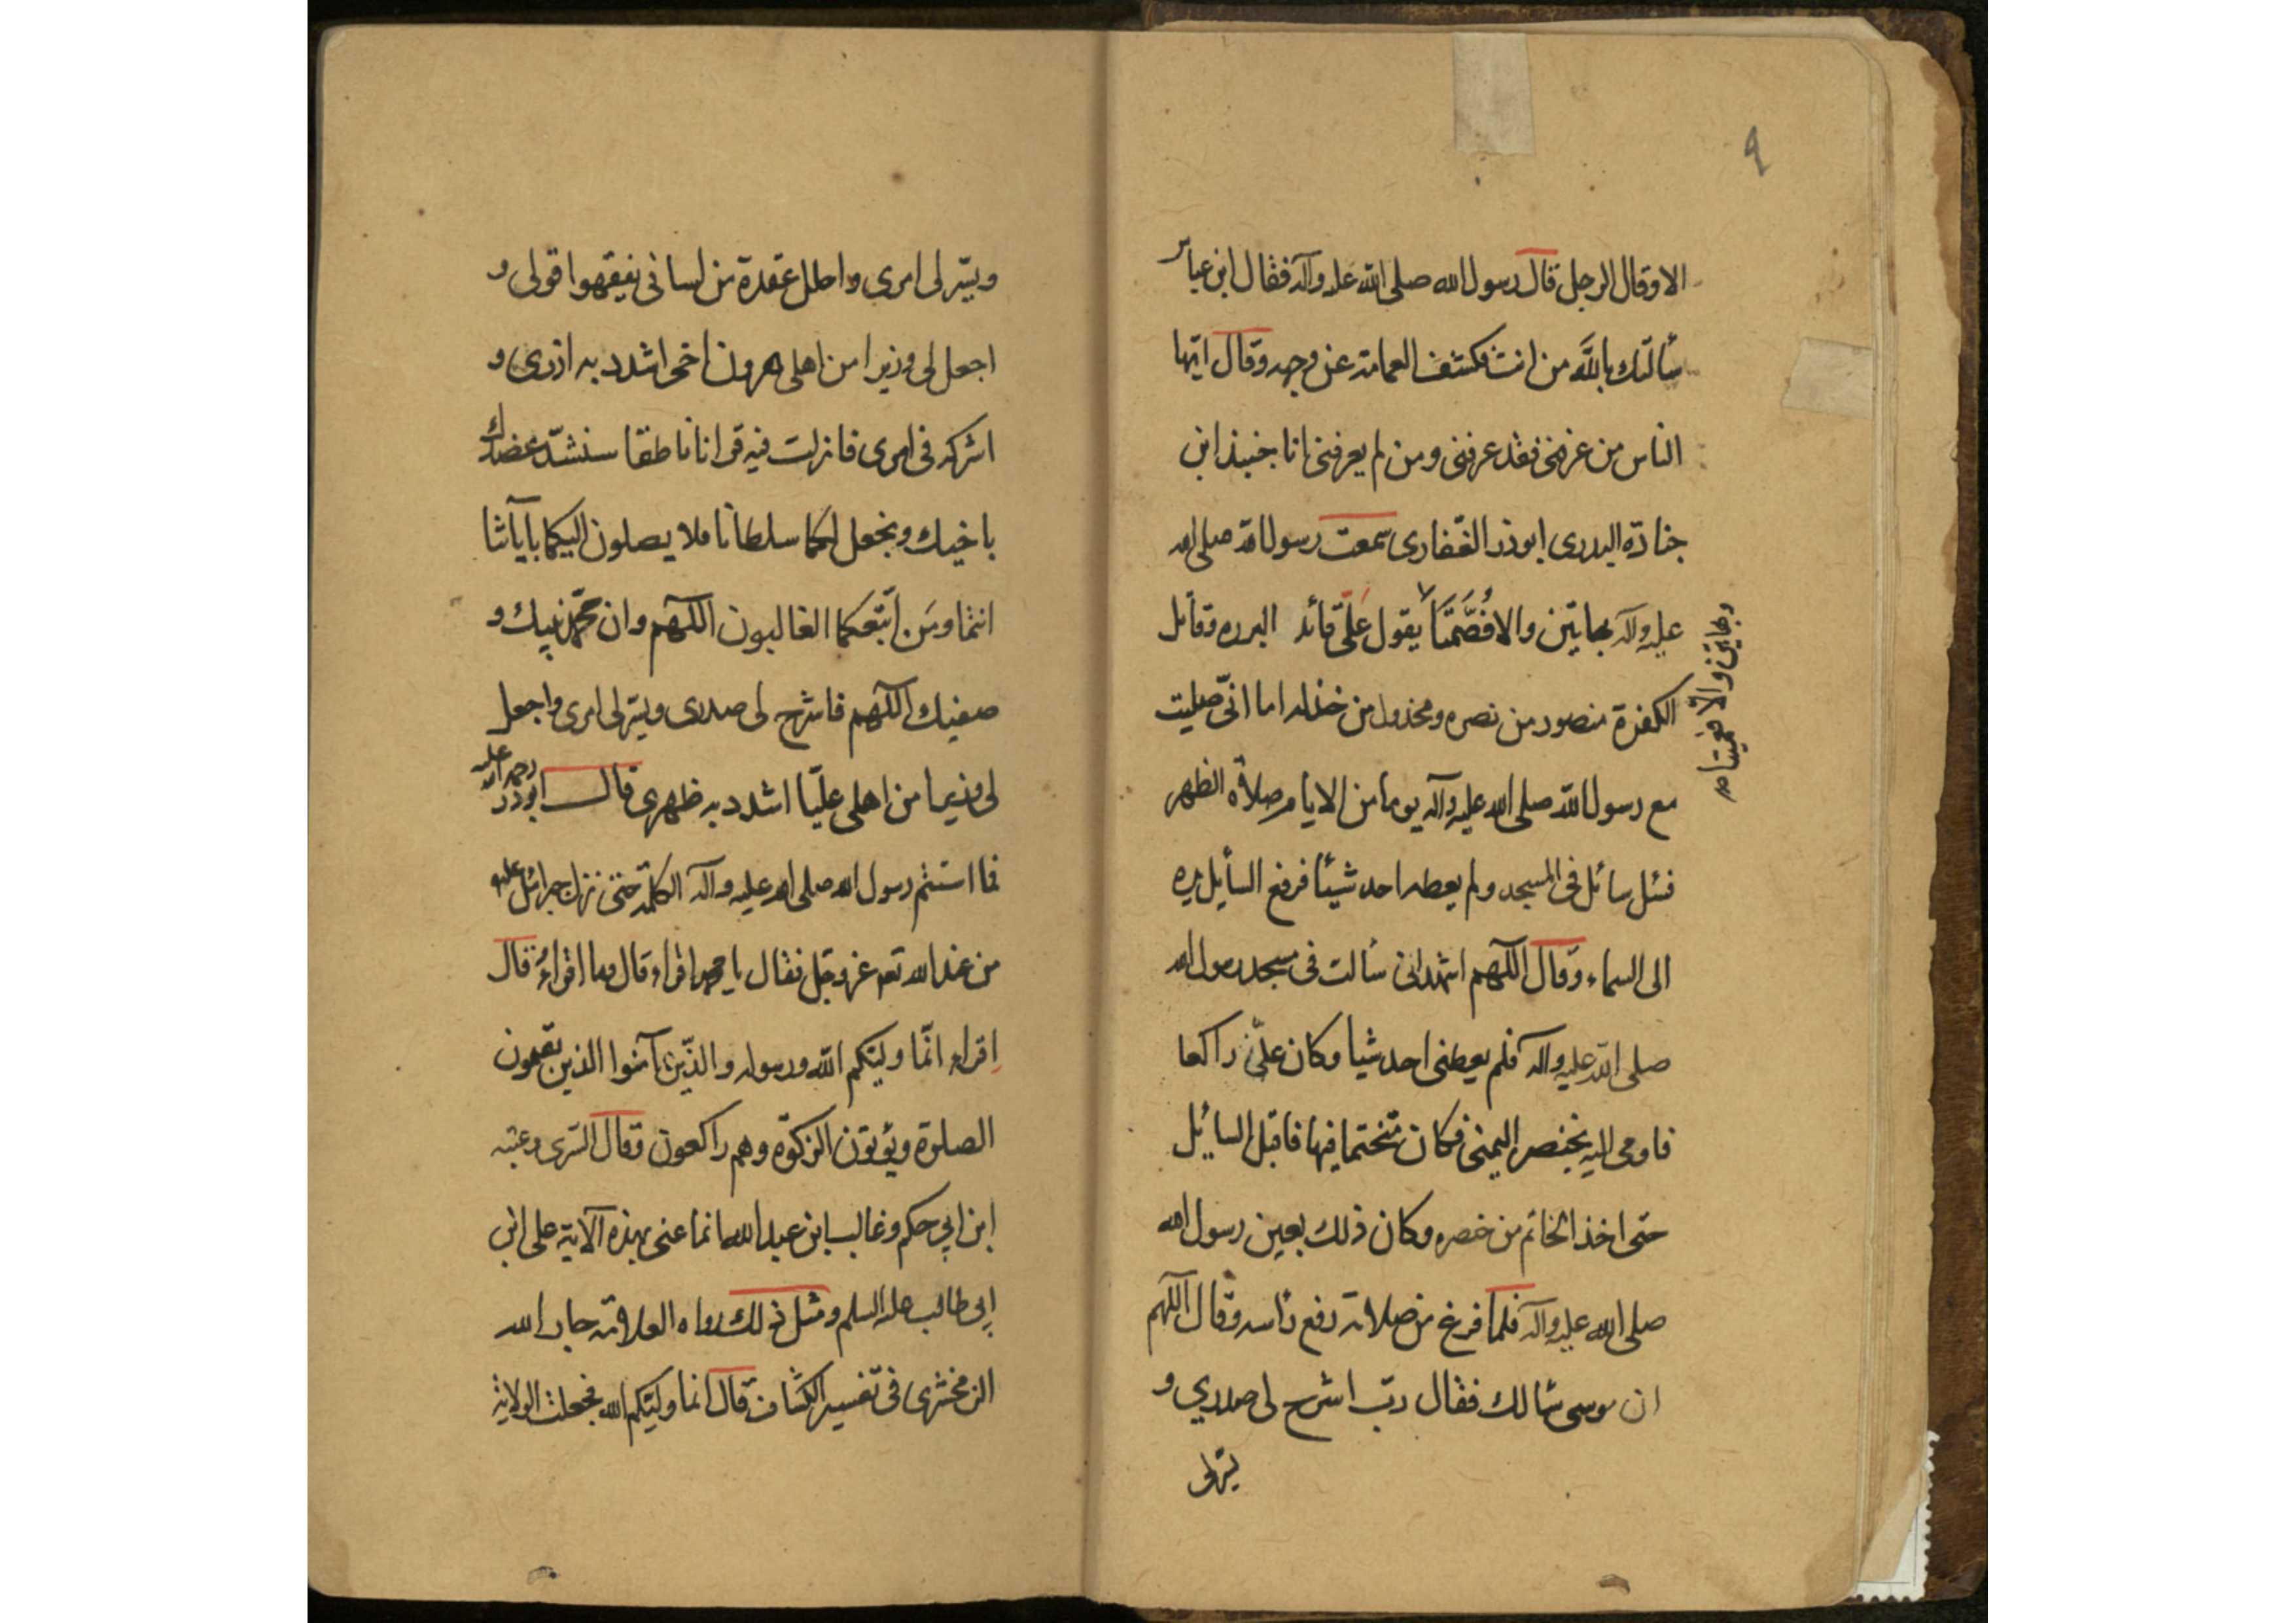 ٩
الا وقال الرجل قال رسول الله صلى الله عليه وآله فقال ابن عباس
سألتك بالله من انت فكشف العمامة عن وجهه وقال ايها
الناس من عرفنى فقد عرفنى ومن لم يعرفنى انا جنبذ ابن
جنادة البدرى ابوذر الغفارى سمعت رسول الله صلى الله
عليه وآله بهاتين والا فصمتا يقول على قائد البرره وقاتل
بهاتين والا فعميتا
الكفرة منصور من نصره ومخذول من خذله اما انى صليت
مع رسول الله صلى الله عليه وآله يوما من الايام صلاة الظهر
فسئل سائل فى المسجد ولم يعطه احد شيئا فرفع السايل يده
الى السماء وقال اللهم اشهد انى سألت فى مسجد رسول الله
صلى الله عليه وآله فلم يعطنى احد شيا وكان على راكعا
فاومى اليه بخنصر اليمنى فكان متختما فيها فاقبل السايل
حتى اخذ الخاتم من خصره وكان ذلك بعين رسول الله
صلى الله عليه وآله فلما فرغ من صلاته رفع رأسه وقال اللهم
ان موسى سالك فقال رب اشرح لى صدري و
يسر لى
ويسر لى امرى واحلل عقدة من لسانى يفيقهوا قولى و
اجعل لى وزيرا من اهلى هرون اخى اشدد به ازرى و
اشركه فى امرى فانزلت فيه قرانا ناطقا سنشد عضدك
باخيك ونجعل لكما سلطانا فلا يصلون اليكما بآياتنا
انتما ومن اتبعكما الغالبون اللهم وان محمد نبيك و
صفيك اللهم فاشرح لى صدرى ويسر لى امرى واجعل
لى وزيرا من اهلى عليا اشدد به ظهرى قال ابوذر رحمه الله عليه
فما استتم رسول الله صلى الله عليه وآله الكلمة حتى نزل جبرائيل عليه
من عند الله تعه عز وجل فقال يا محمد اقراء وقال وما اقراء قال
اقراء انما وليكم الله ورسوله والذين آمنوا الذين يقيمون
الصلوة ويؤتون الزكوة وهم راكعون وقال السدى وعتبه
ابن ابي حكم وغالب ابن عبد الله انما عنى بهذه الآية على ابن
ابى طالب عليه السلم ومثل ذلك رواه العلامة جار الله
الزمخشرى فى تفسير الكشاف قال انما وليكم الله فجعلت الولاية